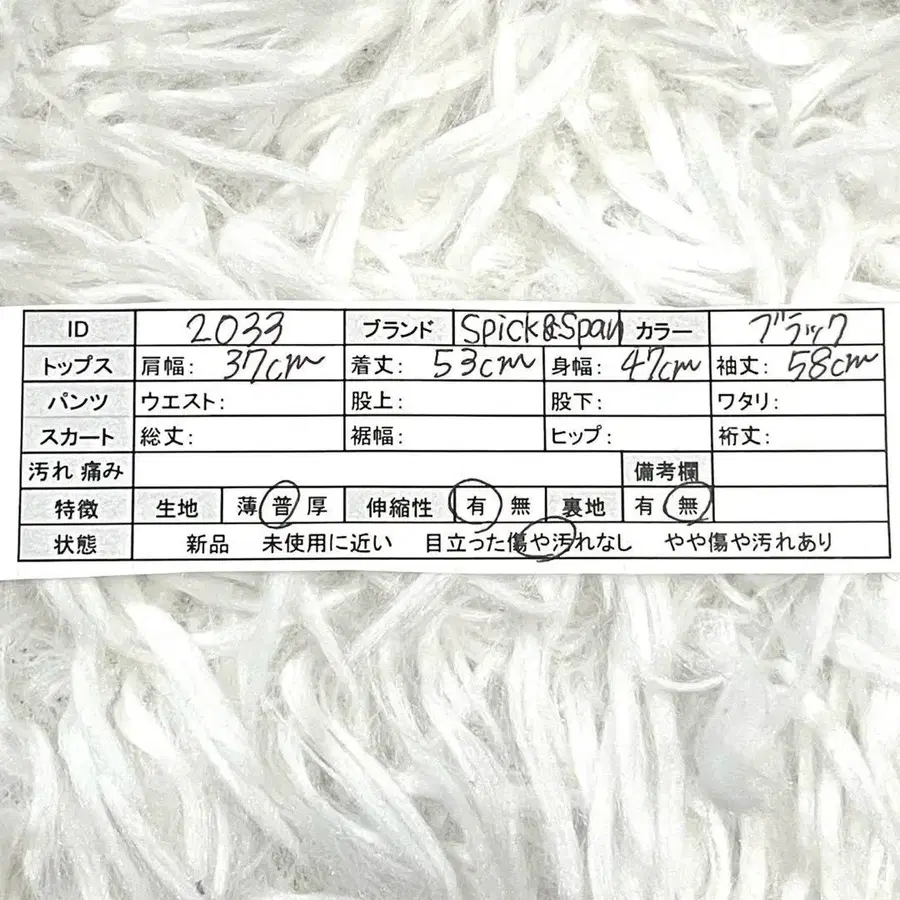 ID 2033 ブランド Spick&Span カラー ブラック
トップス 肩幅: 37cm 着丈: 53cm 身幅: 47cm 袖丈: 58cm
パンツ ウエスト: 股上: 股下: ワタリ:
スカート 総丈: 裾幅: ヒップ: 裄丈:
汚れ 痛み 備考欄
特徴 生地 薄 普 厚 伸縮性 有 無 裏地 有 無
状態 新品 未使用に近い 目立った傷や汚れなし やや傷や汚れあり